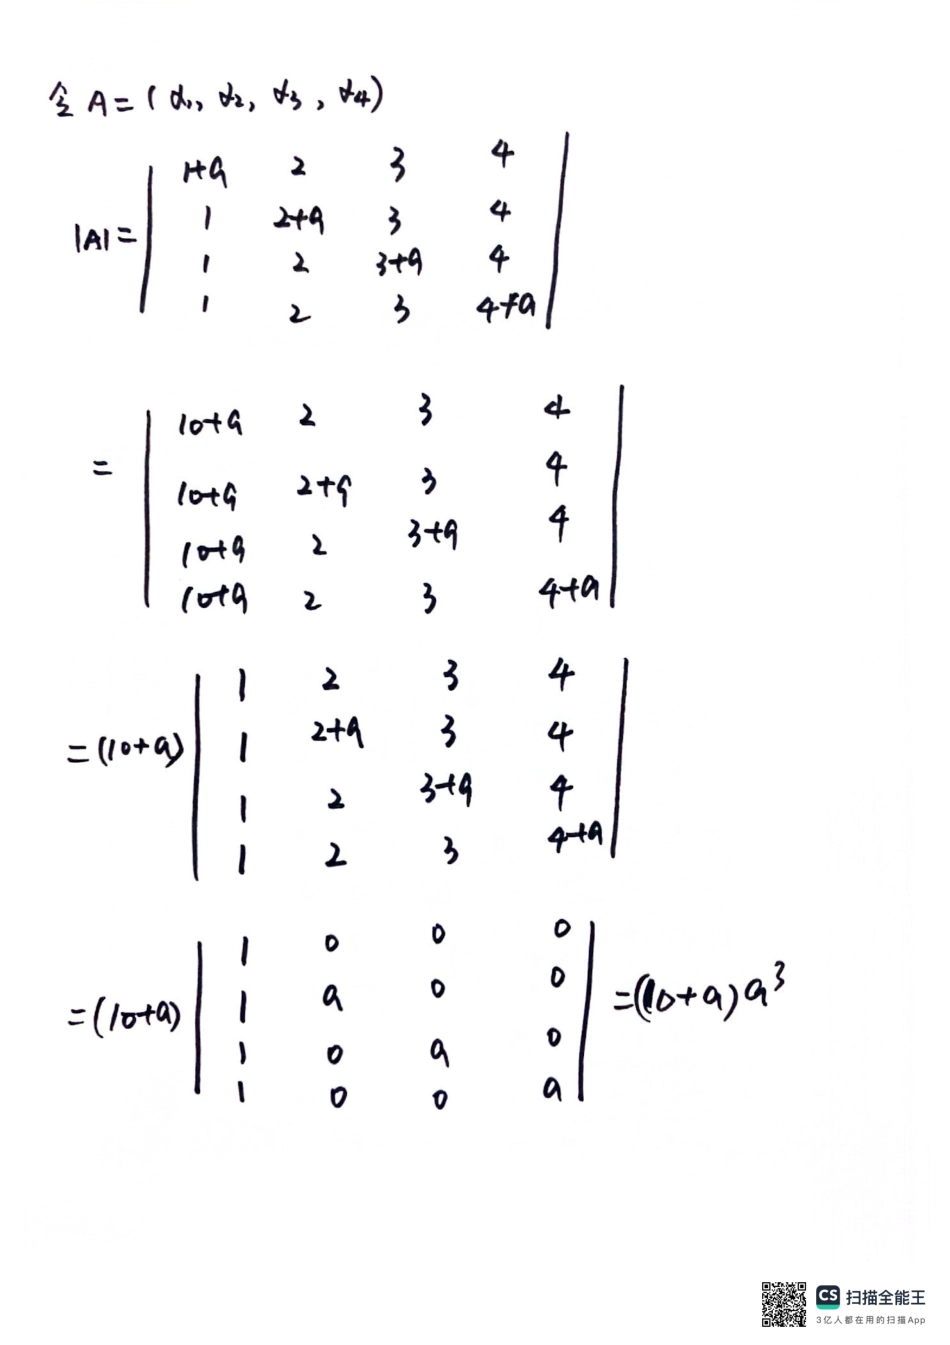 令 A = (α₁, α₂, α₃, α₄)
|A| = | 1+a 2 3 4 |
| 1 2+a 3 4 |
| 1 2 3+a 4 |
| 1 2 3 4+a |
= | 10+a 2 3 4 |
| 10+a 2+a 3 4 |
| 10+a 2 3+a 4 |
| 10+a 2 3 4+a |
= (10+a) | 1 2 3 4 |
| 1 2+a 3 4 |
| 1 2 3+a 4 |
| 1 2 3 4+a |
= (10+a) | 1 0 0 0 |
| 1 a 0 0 |
| 1 0 a 0 |
| 1 0 0 a | = (10+a)a³
CS 扫描全能王
3亿人都在用的扫描App